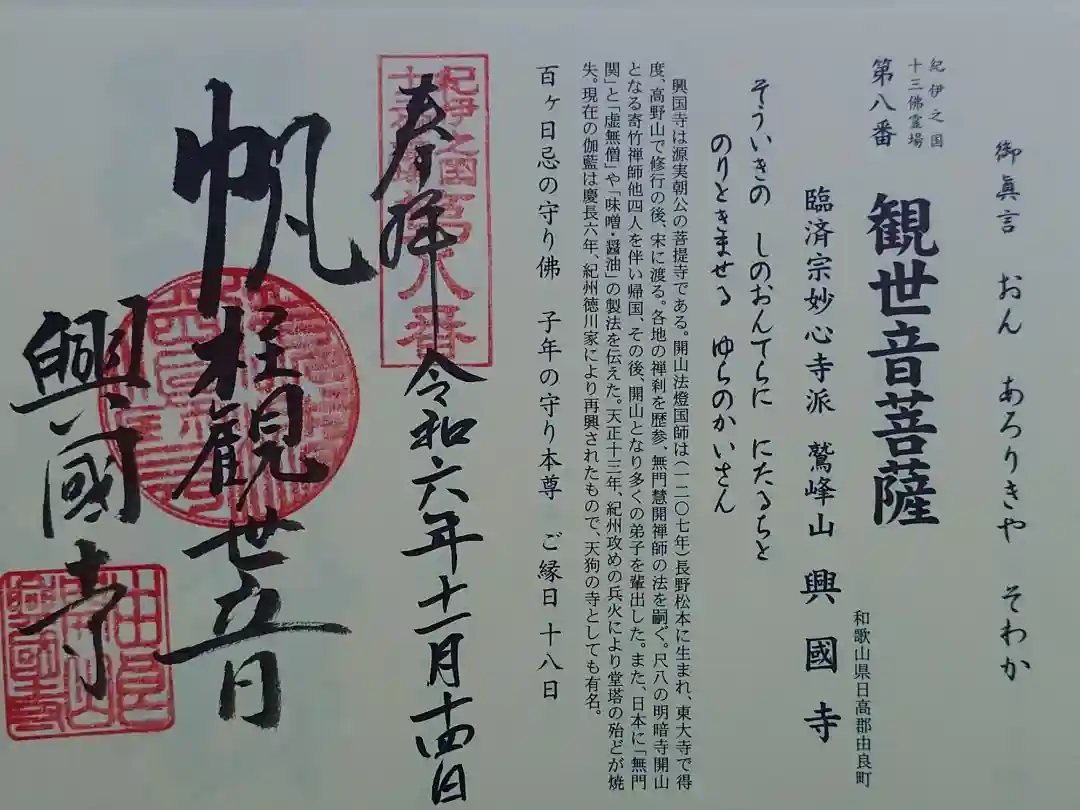 御眞言 おん あろりきや そわか
紀伊之国
十三佛霊場
第八番
観世音菩薩
和歌山県日高郡由良町
臨済宗妙心寺派 鷲峰山 興國寺
そういきの しのおんてらに にたるちと
のりときませる ゆらのかいさん
興国寺は源実朝公の菩提寺である。開山法燈国師は(一二〇七年)長野松本に生まれ、東大寺で得
度、高野山で修行の後、宋に渡る。各地の禅刹を歴参、無門慧開禅師の法を嗣ぐ。尺八の明暗寺開山
となる寄竹禅師他四人を伴い帰国、その後、開山となり多くの弟子を輩出した。また、日本に「無門
関」と「虚無僧」や「味噌・醤油」の製法を伝えた。天正十三年、紀州攻めの兵火により堂塔の殆どが焼
失。現在の伽藍は慶長六年、紀州徳川家により再興されたもので、天狗の寺としても有名。
百ヶ日忌の守り佛 子年の守り本尊 ご縁日十八日
紀伊之國
十三佛霊場
第八番
奉拝 令和六年十一月十四日
帆柱観世音
興國寺